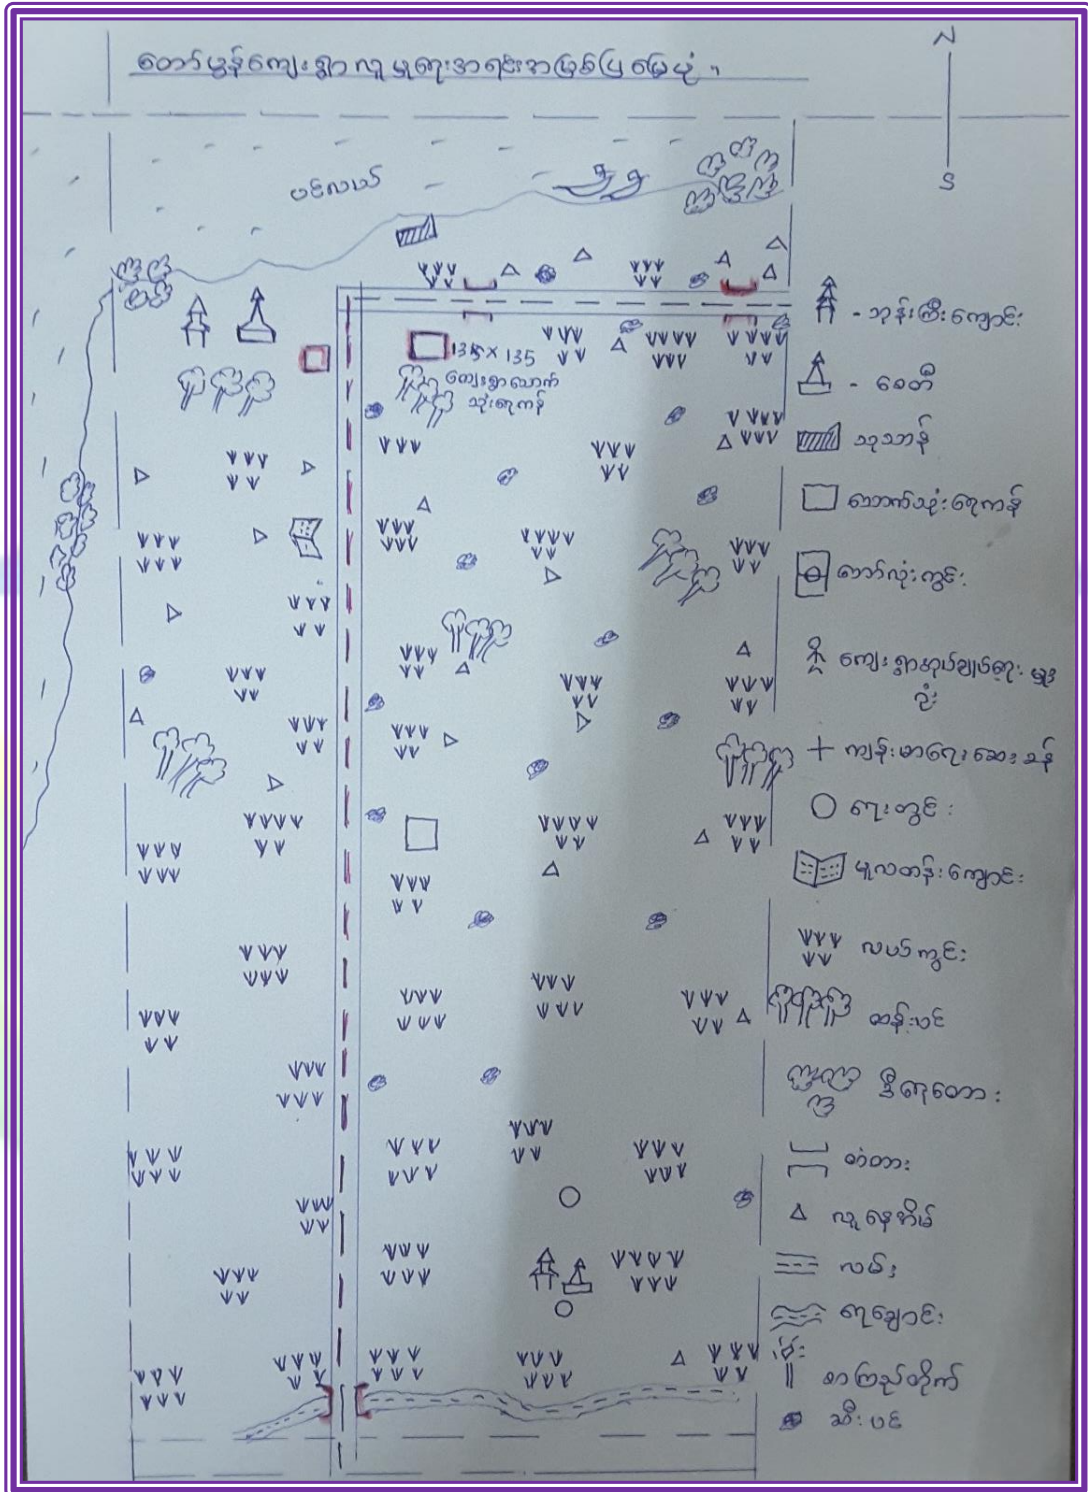 တော်ပွန်ကျေးရွာ လူမှုရေးအရင်းအမြစ်ပြ မြေပုံ ။
N
S
ပင်လယ်
135 × 135
ကျေးရွာသောက်
သုံးရေကန်
- ဘုန်းကြီးကျောင်း
- စေတီ
သုသာန်
သောက်သုံးရေကန်
ဘော်လုံးကွင်း
ကျေးရွာအုပ်ချုပ်ရေးမှူး
ရုံး
ကျန်းမာရေးဆေးခန်
ရေတွင်း
မူလတန်းကျောင်း
လယ်ကွင်း
ထန်းပင်
ဒီရေတော
တံတား
လူနေအိမ်
လမ်း
ရေချောင်း
စာကြည့်တိုက်
ဆီးပင်